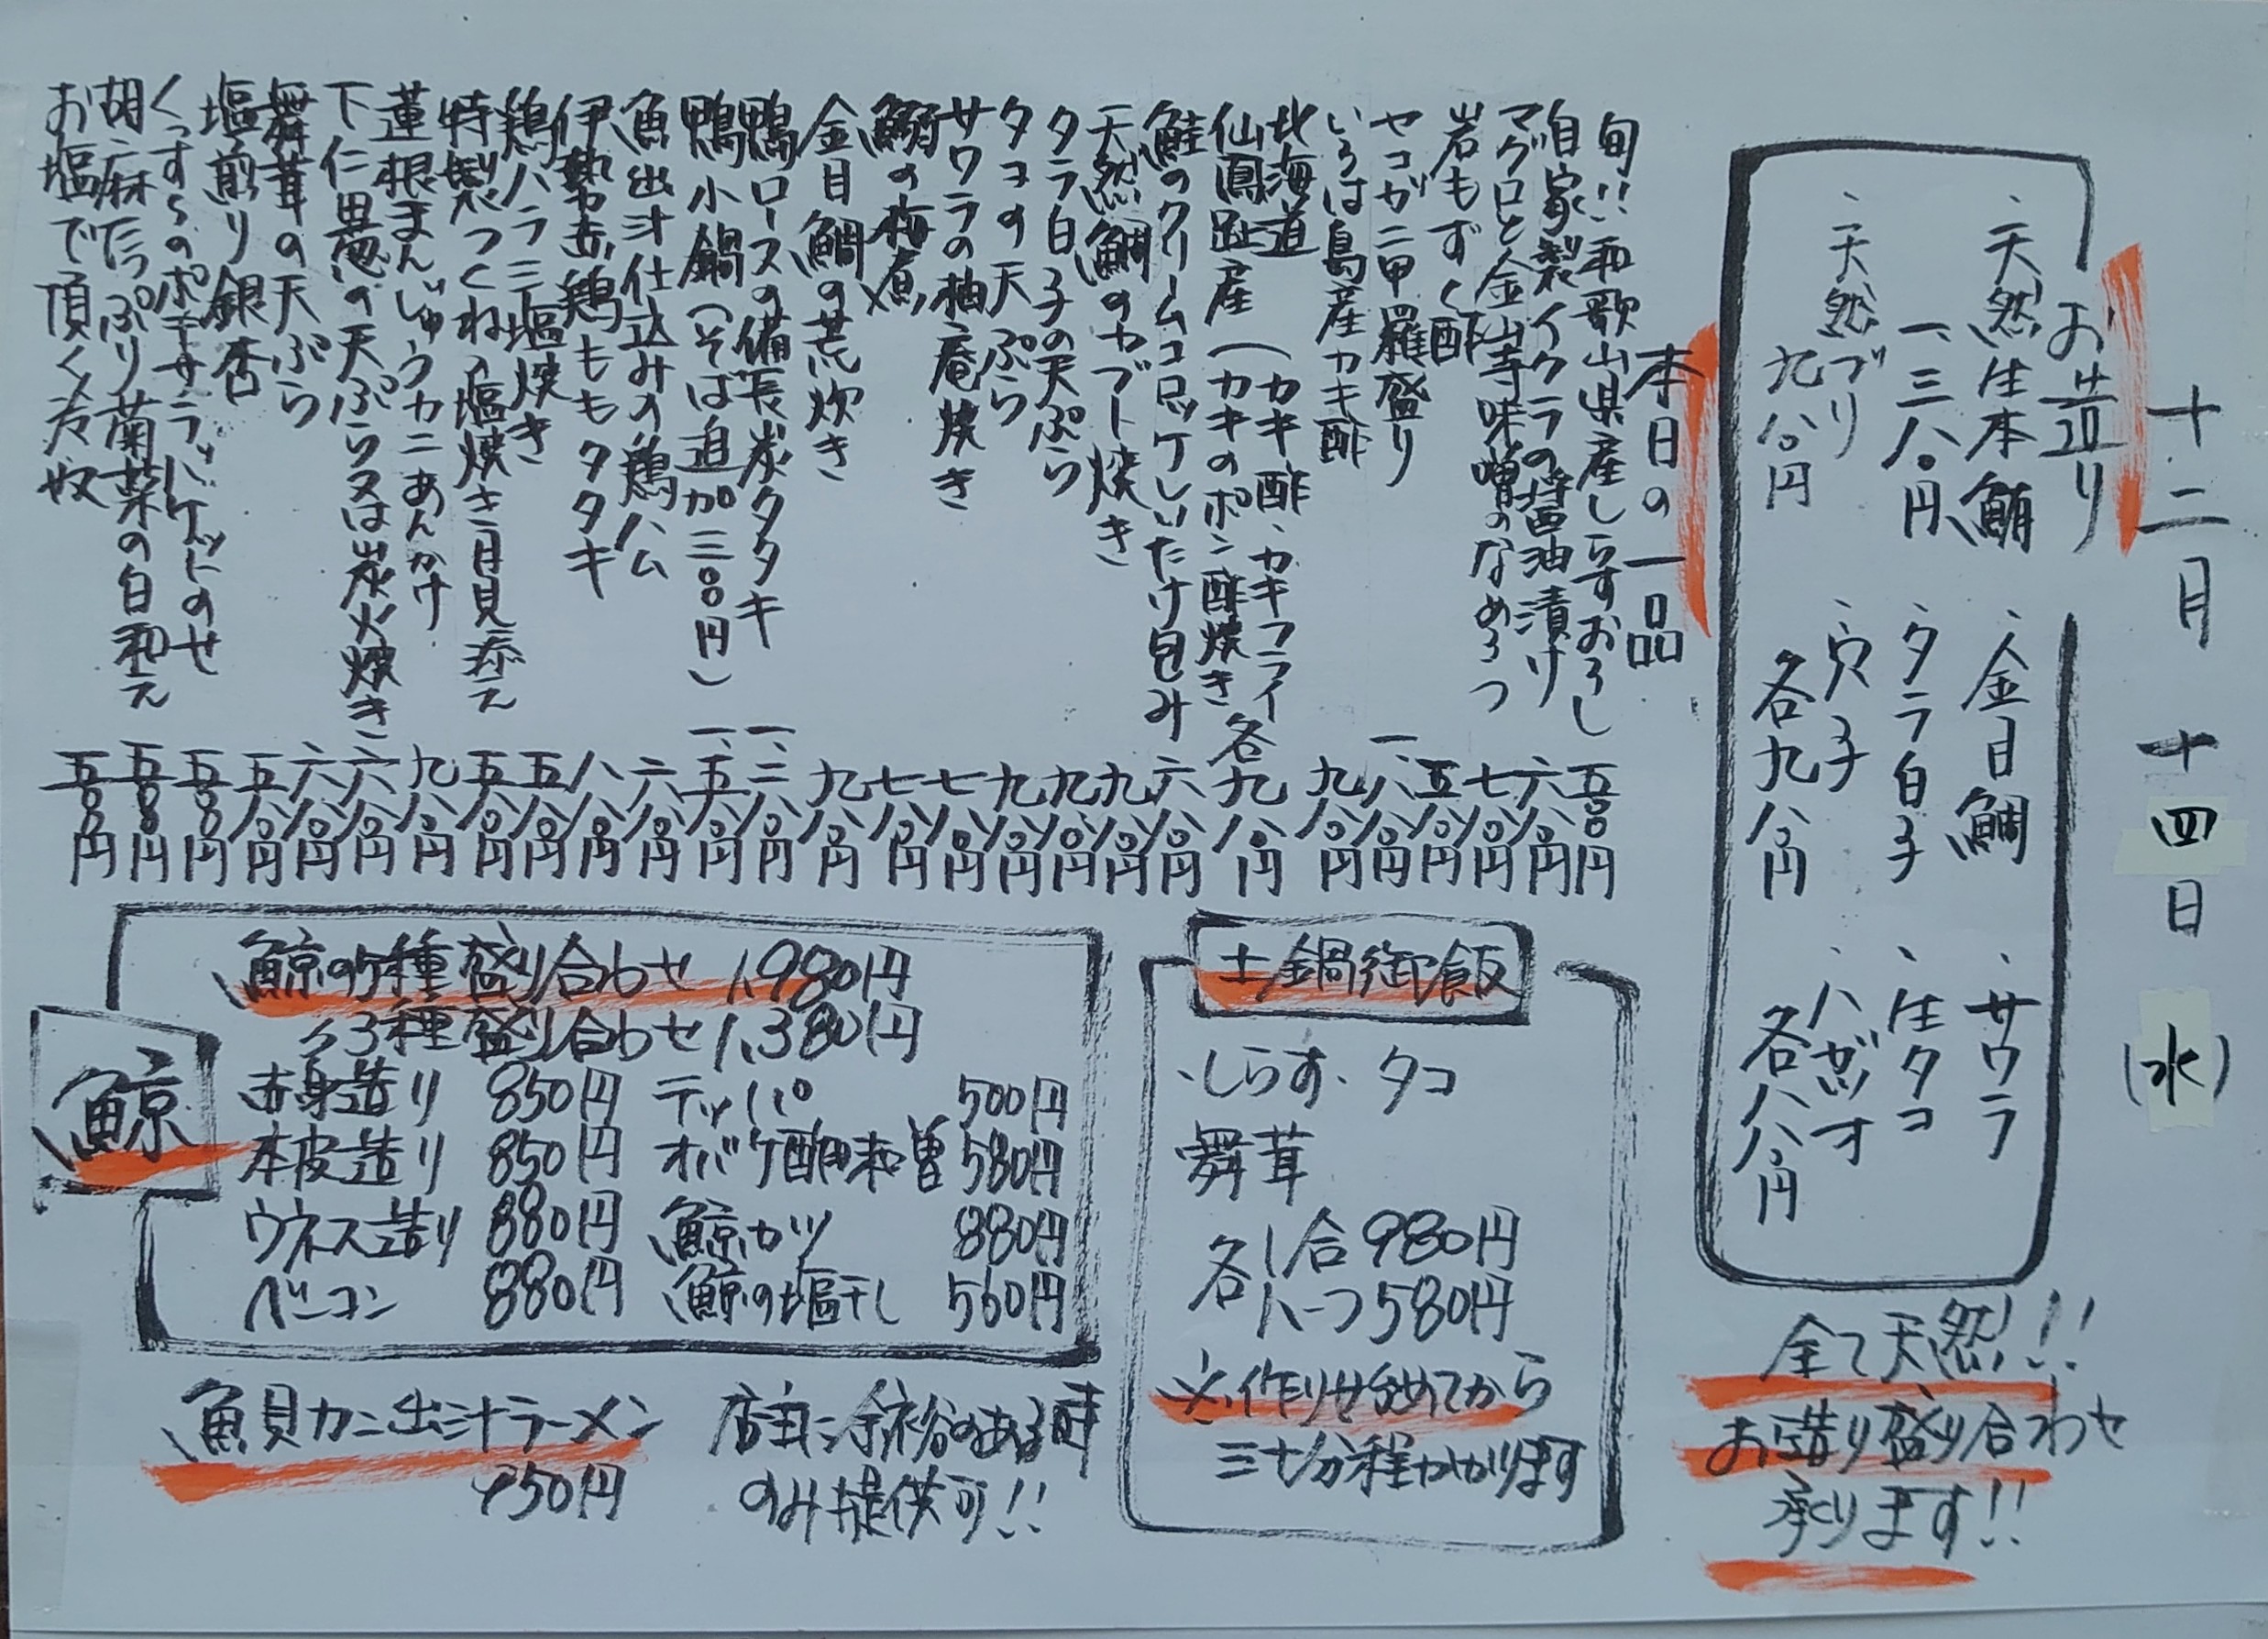 十二月 十四日 (水)
お造り
、天然生本鮪
一、三八〇円
、天然ブリ
九八〇円
、金目鯛
、タラ白子
、穴子
各九八〇円
、サワラ
、生タコ
、ハガツオ
各八八〇円
全て天然!!
お造り盛り合わせ
承ります!!
本日の一品
旬!!和歌山県産しらすおろし 五〇〇円
自家製イクラの醤油漬け 六八〇円
マグロと金山寺味噌のなめろう 七八〇円
岩もずく酢 五八〇円
セコガニ甲羅盛り 一、八八〇円
いろは島産カキ酢 九八〇円
北海道
仙鳳趾産(カキ酢、カキフライ
(カキのポン酢焼き 各九八〇円
鮭のクリームコロッケしいたけ包み 六八〇円
天然鯛のカブト焼き 九八〇円
タラ白子の天ぷら 九八〇円
タコの天ぷら 九八〇円
サワラの柚庵焼き 七八〇円
鰯の梅煮 七八〇円
金目鯛の荒炊き 九八〇円
鴨ロースの備長炭タタキ 一、二八〇円
鴨小鍋(そば追加三〇〇円) 一、五八〇円
魚出汁仕込みの鶏ハム 六八〇円
伊勢赤鶏ももタタキ 八八〇円
鶏ハラミ塩焼き 五八〇円
特製つくね塩焼き 月見添え 五八〇円
蓮根まんじゅうカニあんかけ 九八〇円
下仁田葱の天ぷら又は炭火焼き 六八〇円
舞茸の天ぷら 六八〇円
塩煎り銀杏 五八〇円
くずし豆のポテサラ バケットのせ 五〇〇円
胡麻たっぷり菊菜の白和え 五〇〇円
お塩で頂く冷奴 五〇〇円
土鍋御飯
、しらす、タコ
舞茸
各1合980円
各ハーフ580円
※作り始めてから
三十分程かかります
鯨
鯨の5種盛り合わせ 1,980円
〃3種盛り合わせ 1,380円
赤身造り 850円 テッパ 500円
本皮造り 850円 オバケ酢味噌 580円
ウネス造り 880円 鯨カツ 880円
ベーコン 880円 鯨の塩干し 560円
魚貝カニ出汁ラーメン
950円
店主に余裕のある時
のみ提供可!!